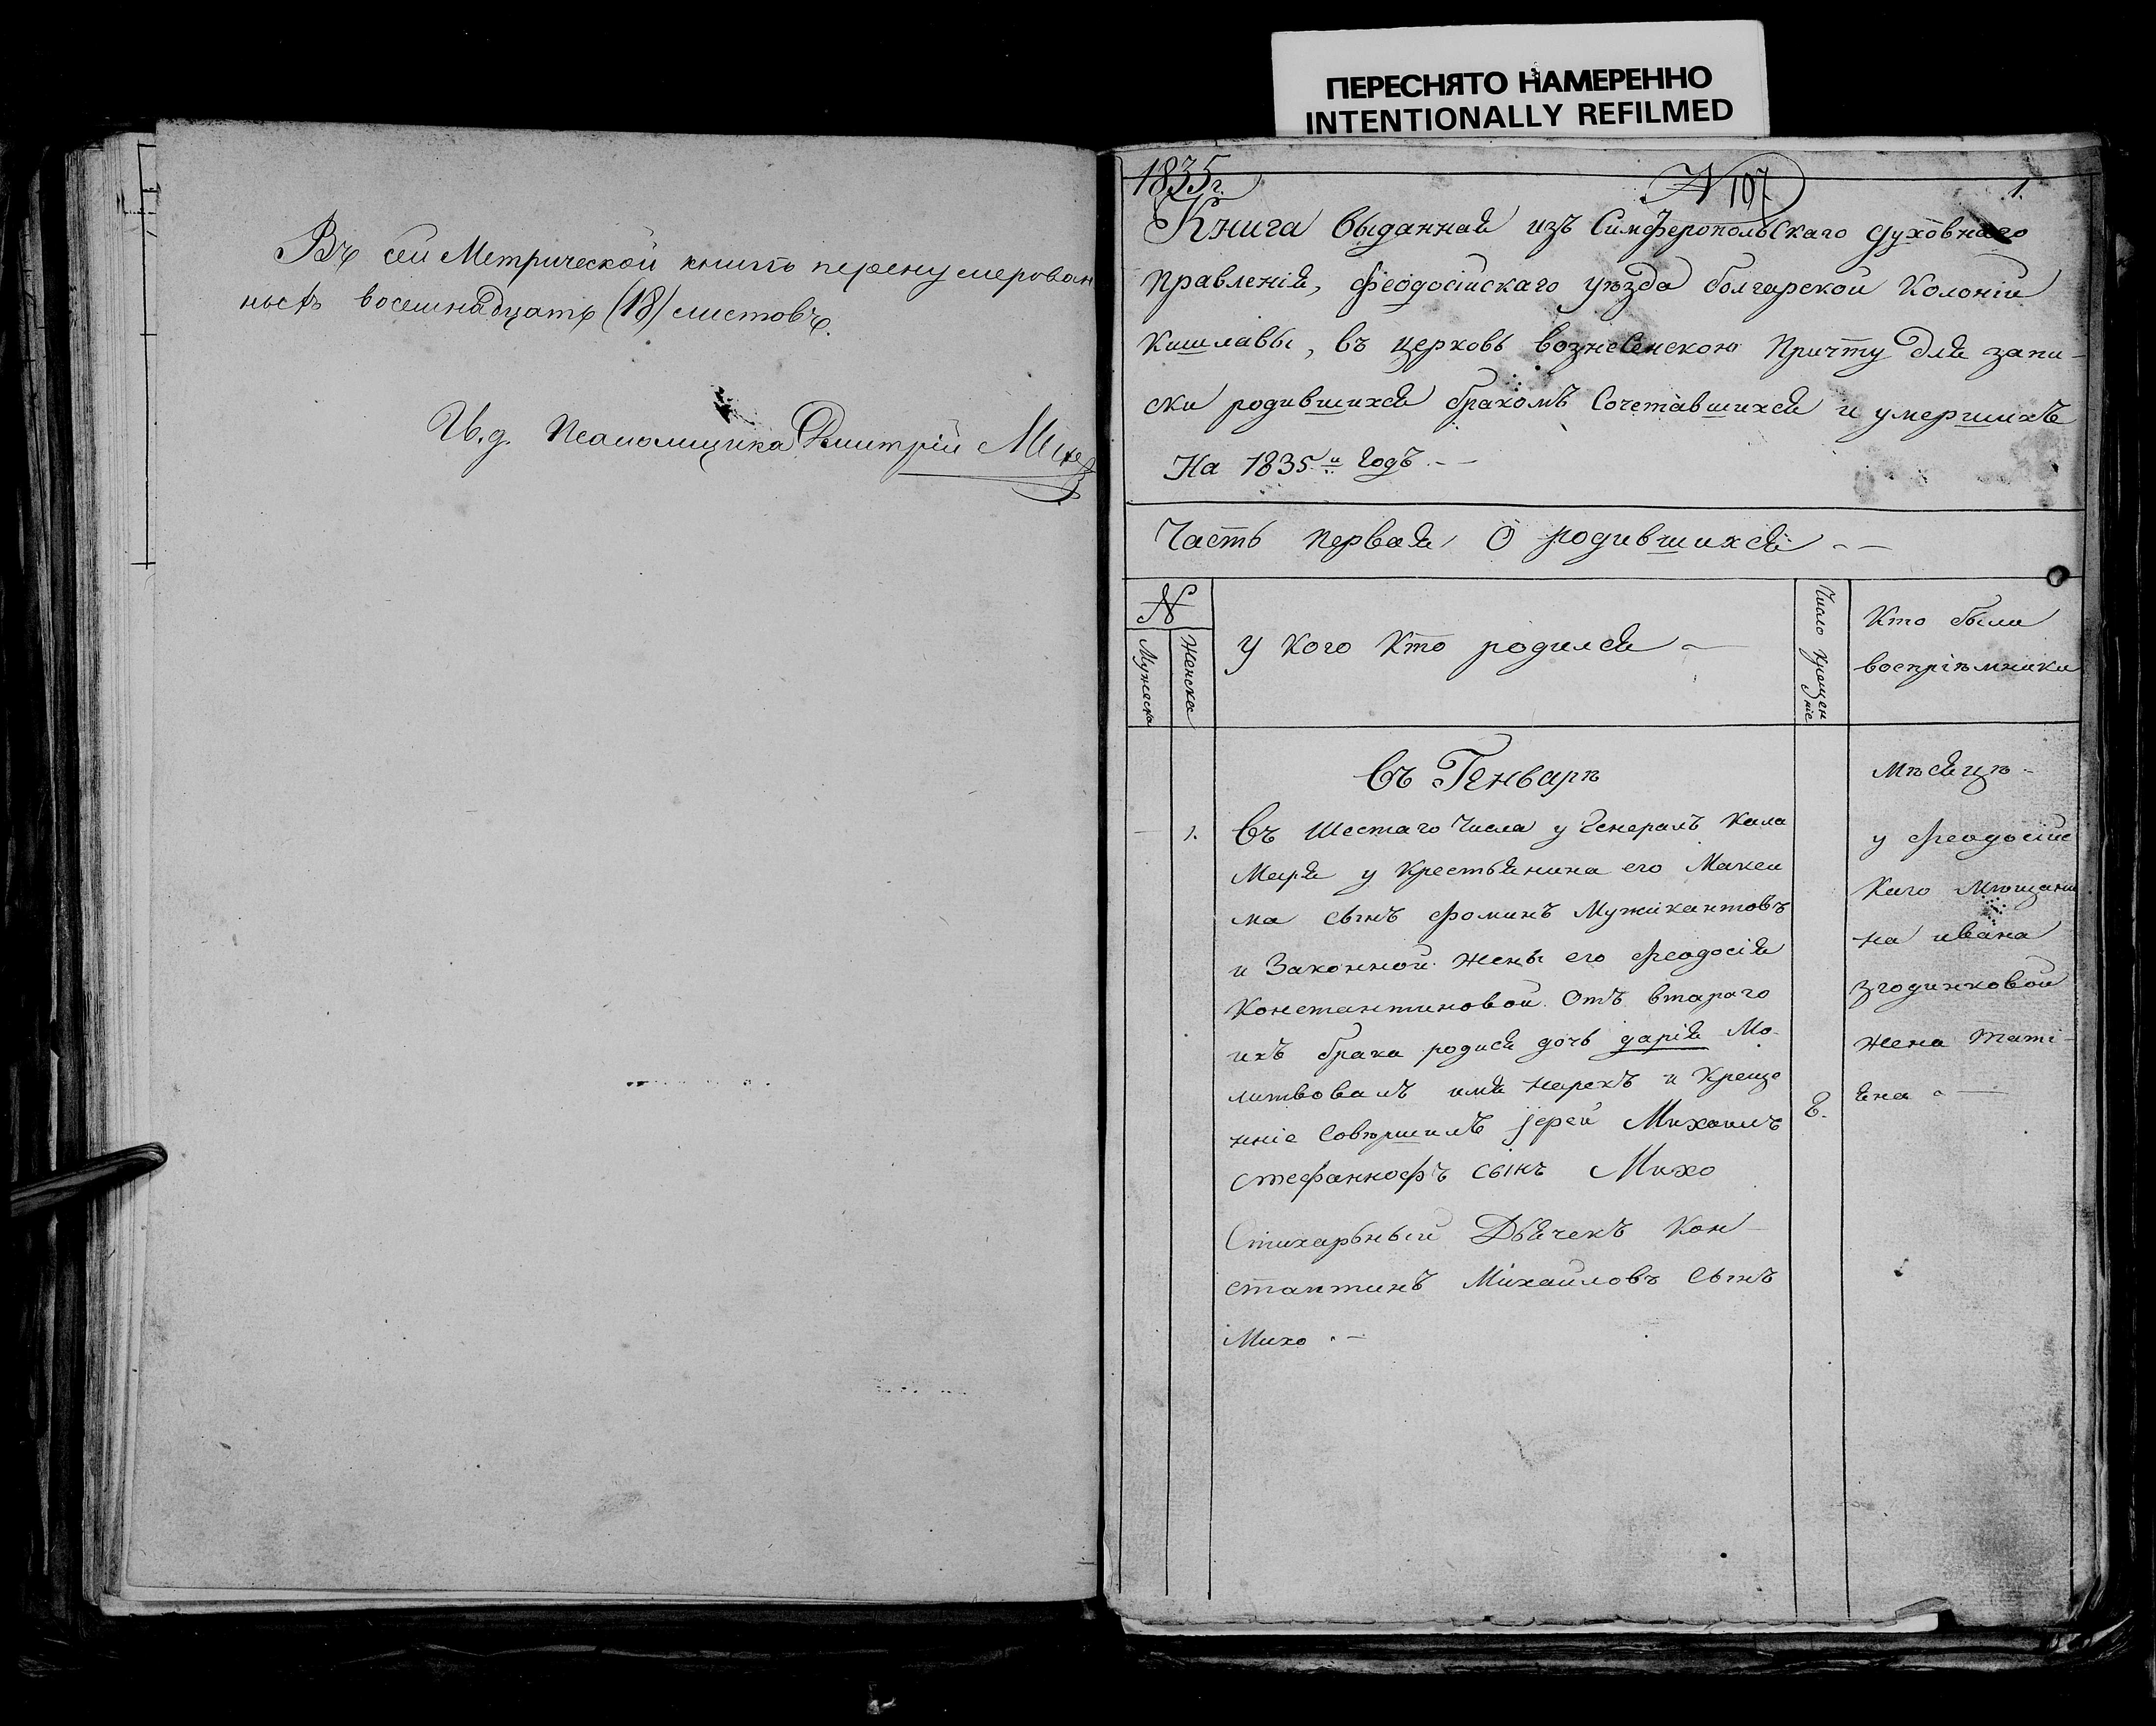 ПЕРЕСНЯТО НАМЕРЕННО
INTENTIONALLY REFILMED
Въ сей Метрической книгѣ перенумерован
ныхъ восемнадцать (18) листовъ.
И. д. Псаломщика Дмитрій
1835 г.
N 107
1.
Книга выданная изъ Симферопольскаго духовнаго
правленія, феодосійскаго уѣзда болгарской Колоніи
Кишлавы, въ церковь вознесенскою Причту для запи-
ски родившихся бракомъ Сочетавшихся и умершихъ
На 1835й годъ.—
Часть первая О родившихся —
N
Мужеска
Женска
у кого Кто родился —
Число крещен
ніе
Кто были
воспріѣмники
въ Генварѣ
мѣсяцѣ.
1.
въ Шестаго Числа у Генералъ Кала
Мара у Крестьянина его Макси
ма сынъ фоминъ Мужикантовъ
и Законной жены его феодосія
Константиновой. Отъ втораго
ихъ брака родися дочь дарія Мо-
литвовалъ имя нарекъ и Креще
ніе Совѣршилъ іерей Михаилъ
стефанкофъ сынъ Михо
Стихарьный Дьячекъ Кон-
стантинъ Михайловъ Сынъ
Михо.—
у феодосійс
Каго Мѣщани
на ивана
згодинковой
жена тати-
яна —